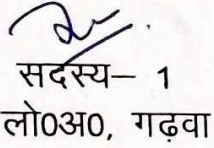 सदस्य– 1
लो0अ0, गढ़वा